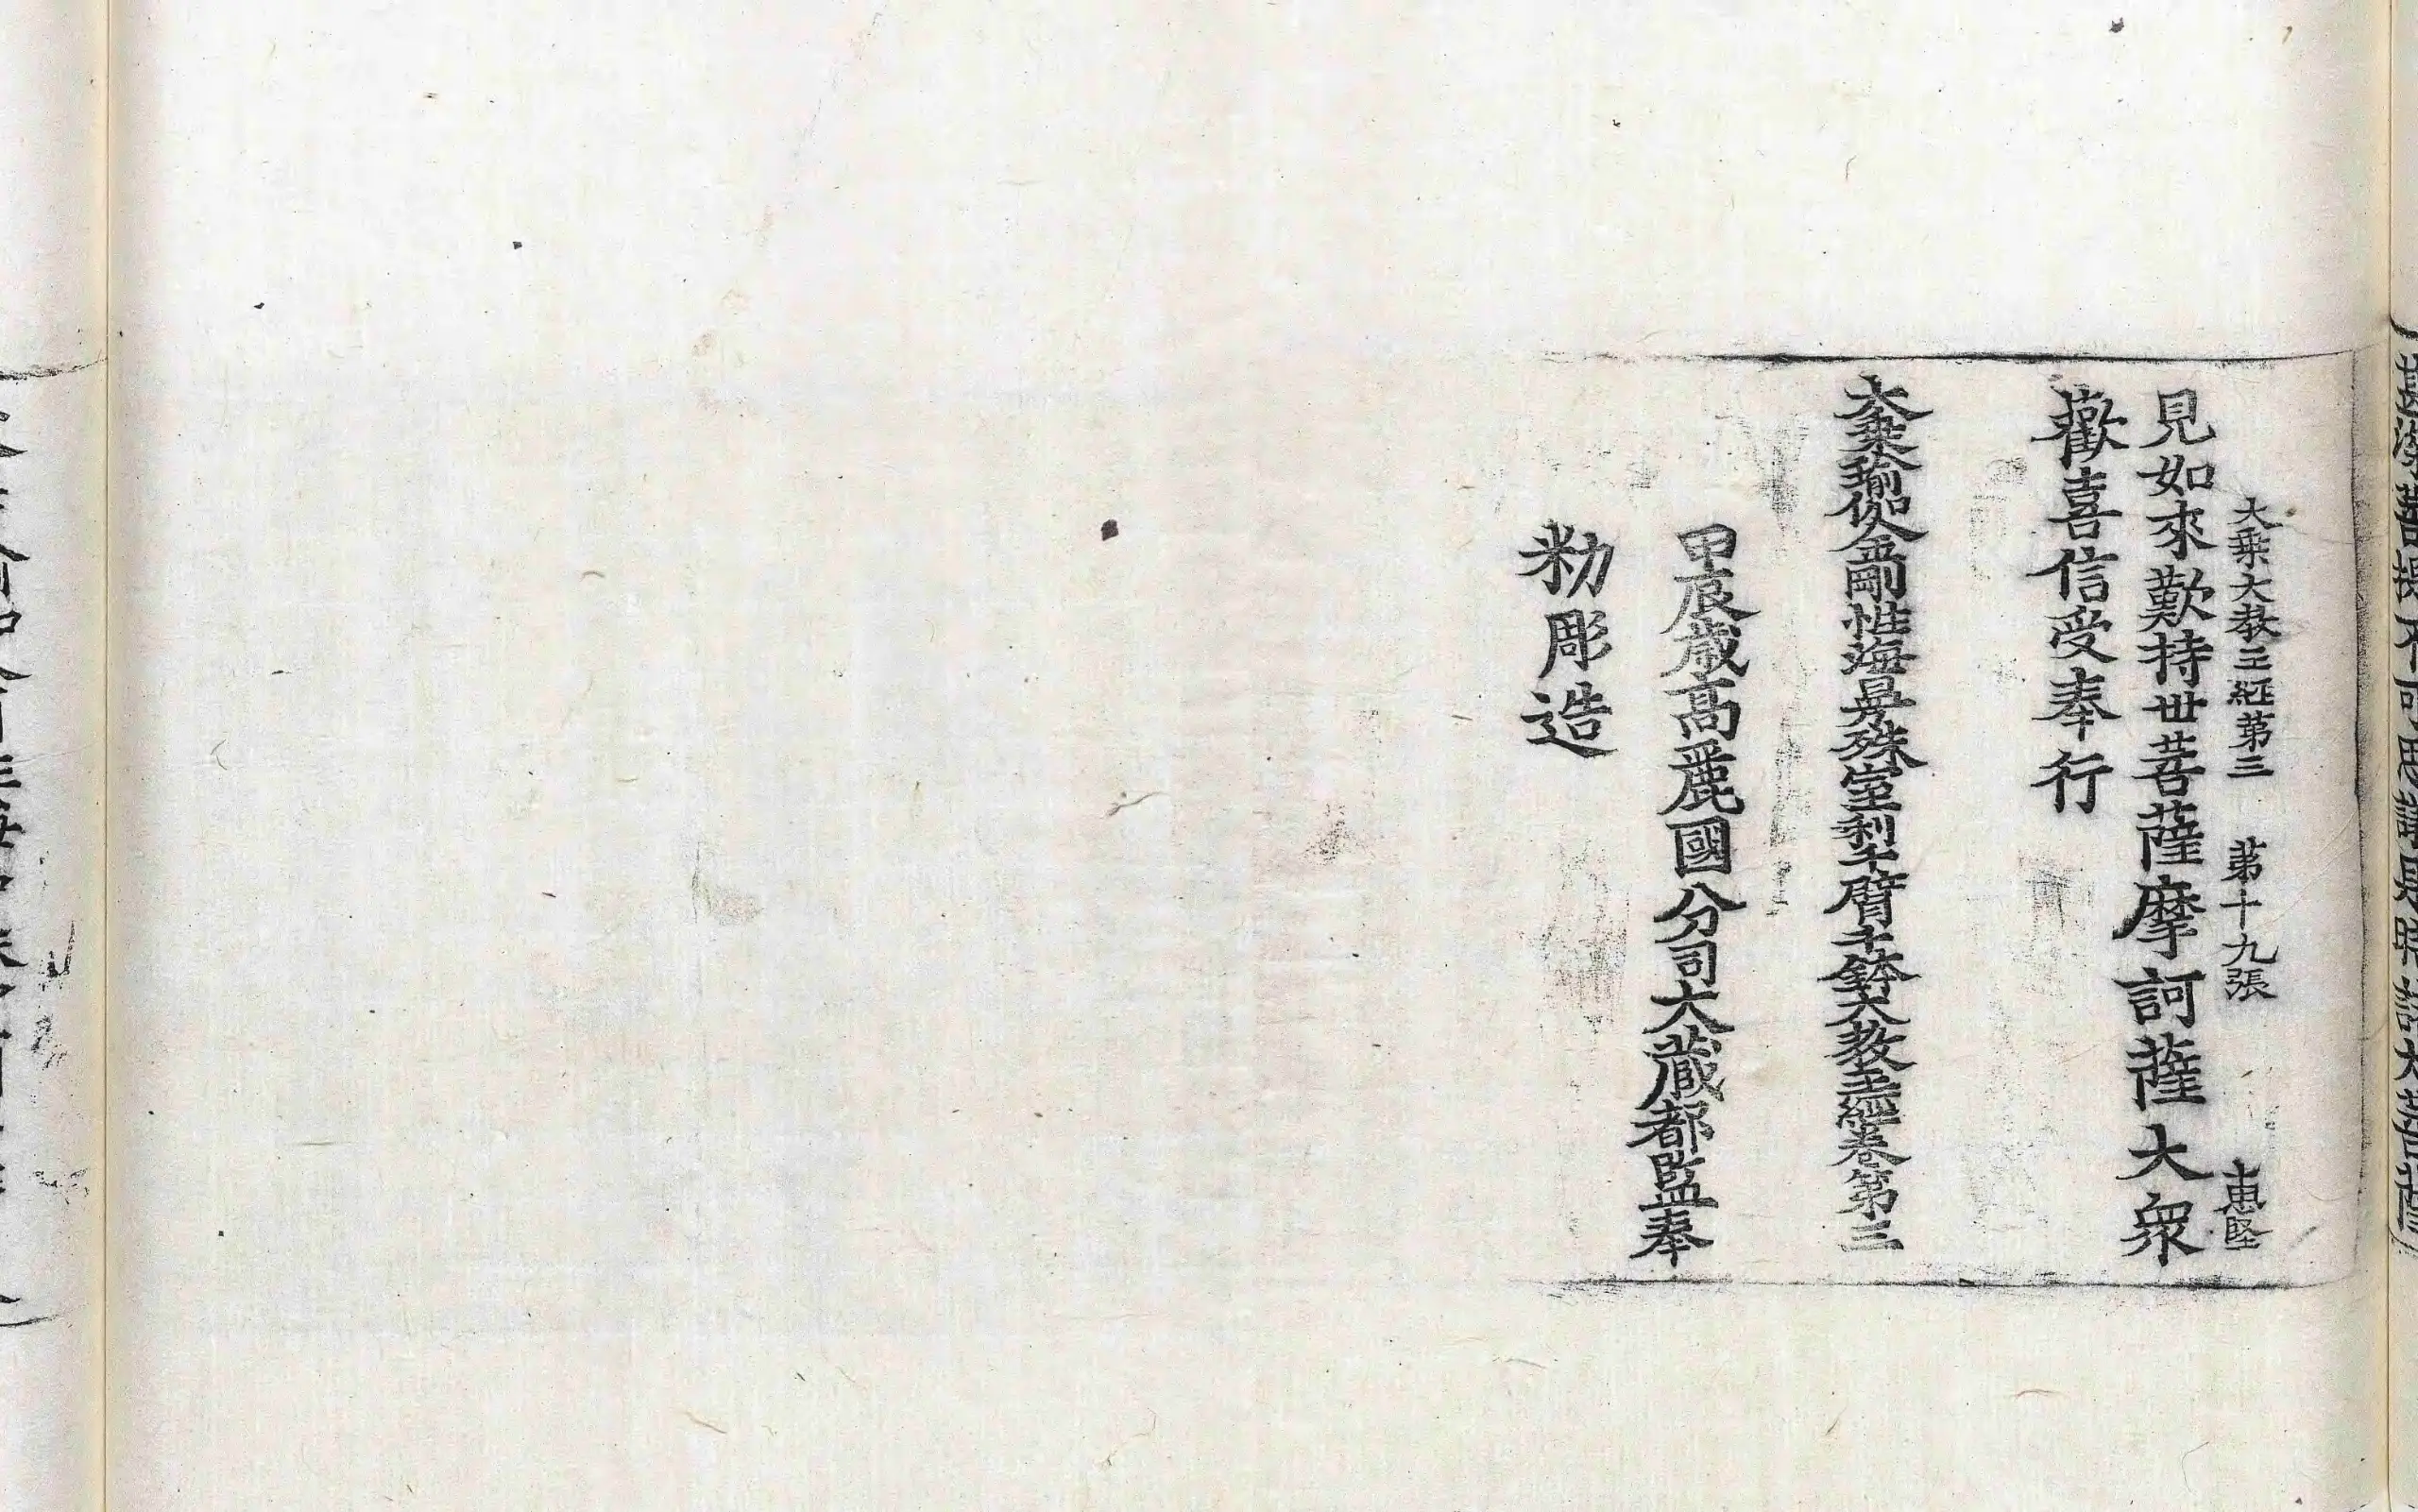 大乗大教王経第三　第十九張　惠堅
見如來歎持世菩薩摩訶薩大衆
歡喜信受奉行
大乘瑜伽金剛性海曼殊室利千臂千鉢大教王經卷第三
甲辰歲高麗國分司大藏都監奉
勑彫造